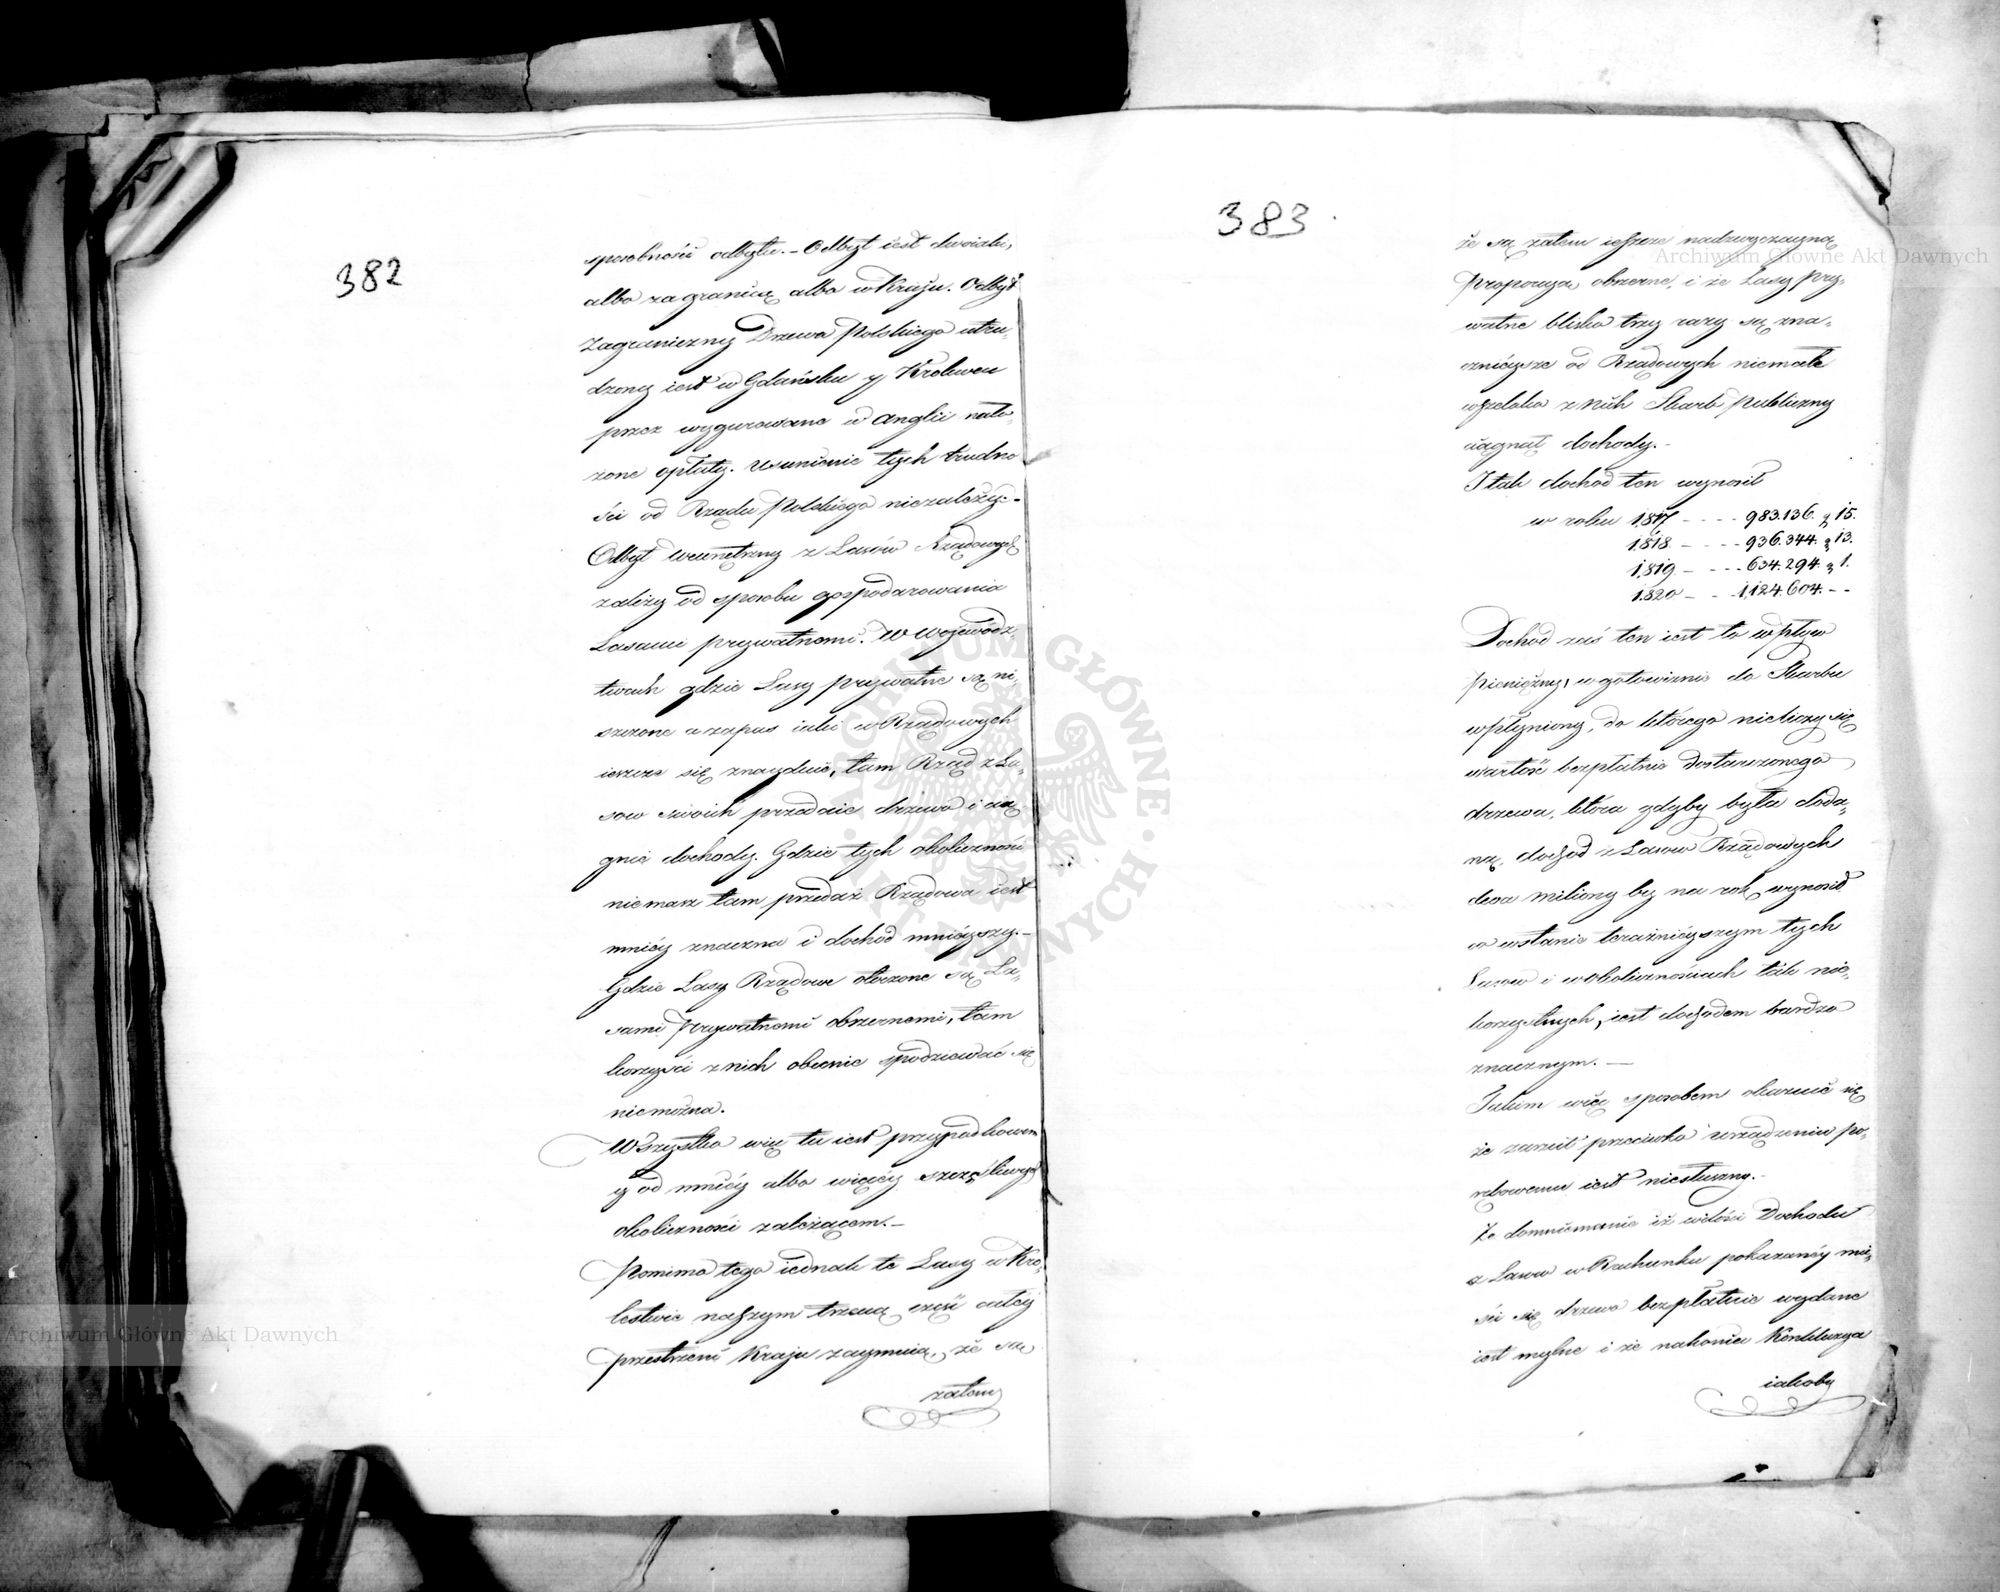 382
sposobności odbytu. - Odbyt iest dwoiaki,
albo zagranicą albo w Kraju. Odbyt
Zagraniczny Drzewa Polskiego utru-
dzony iest w Gdańsku y Krolewcu
przez wygurowane w Anglii nało-
żone opłaty. Usunienie tych trudno
ści od Rządu Polskiego niezależy. -
Odbyt wewnętrzny z Lasów Rządowych
zależy od sposobu gospodarowania
Lasami prywatnemi. W Wojewódz-
twach gdzie Lasy prywatne są ni-
szczone a zapas iakiś w Rządowych
ieszcze się znayduie, tam Rząd z La-
sow swoich przedaie drzewo i cią
gnie dochody. Gdzie tych okoliczności
niemasz tam przedaż Rządowa iest
mniéy znaczna i dochod mniéyszy. -
Gdzie Lasy Rządowe otoczone są La-
sami Prywatnemi obszernemi, tam
korzyści z nich obecnie spodziewać się
niemożna.
Wszystko więc tu iest przypadkowem
y od mniéy albo więcéy szczęśliwych
okoliczności zależącem. -
Pomimo tego iednak te Lasy w Kro-
lestwie naszym trzecią część całéy
przestrzeni Kraju zaymuią, że są
zatem
383
że są zatem ieszcze nadzwyczayną
Proporcyą obszerne, i że Lasy Pry-
watne blisko trzy razy są zna-
cznieysze od Rządowych niemałe
wszelako z nich Skarb Publiczny
ciągnął dochody. -
I tak dochod ten wynosił
w roku 1817 - - - - 983.136. „ 15.
1818. - - - - 936.344. „ 13.
1819 - - - - 634.294. „ 1.
1820 - - 1,124.604. - -
Dochod zaś ten iest to wpływ
Pieniężny, w gotowiznie do Skarbu
wpłyniony, do którego nieliczy się
wartość bezpłatnie dostarczonego
drzewa, która gdyby była doda-
ną, dochod z Lasow Rządowych
dwa miliony by na rok wynosił
co w stanie teraźnieyszym tych
Lasow i w okolicznościach tak nie-
korzystnych, iest dochodem bardzo
znacznym. -
Takim więc sposobem okazuie się
że zarzut przeciwko urządzeniu po-
rębowemu iest niesłuszny. -
Że domniemanie iż w ilości Dochodu
z Lasow w Rachunku pokazanéy mie-
ści się drzewo bezpłatnie wydane
iest mylne i że nakoniec Konkluzya
iakoby
Archiwum Główne Akt Dawnych
Archiwum Główne Akt Dawnych
ARCHIWUM GŁÓWNE AKT DAWNYCH